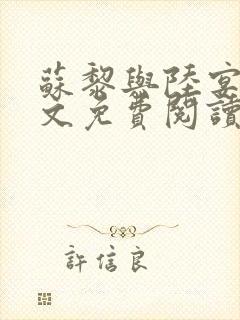 蘇黎與陸宴
文免費閱讀
許信良